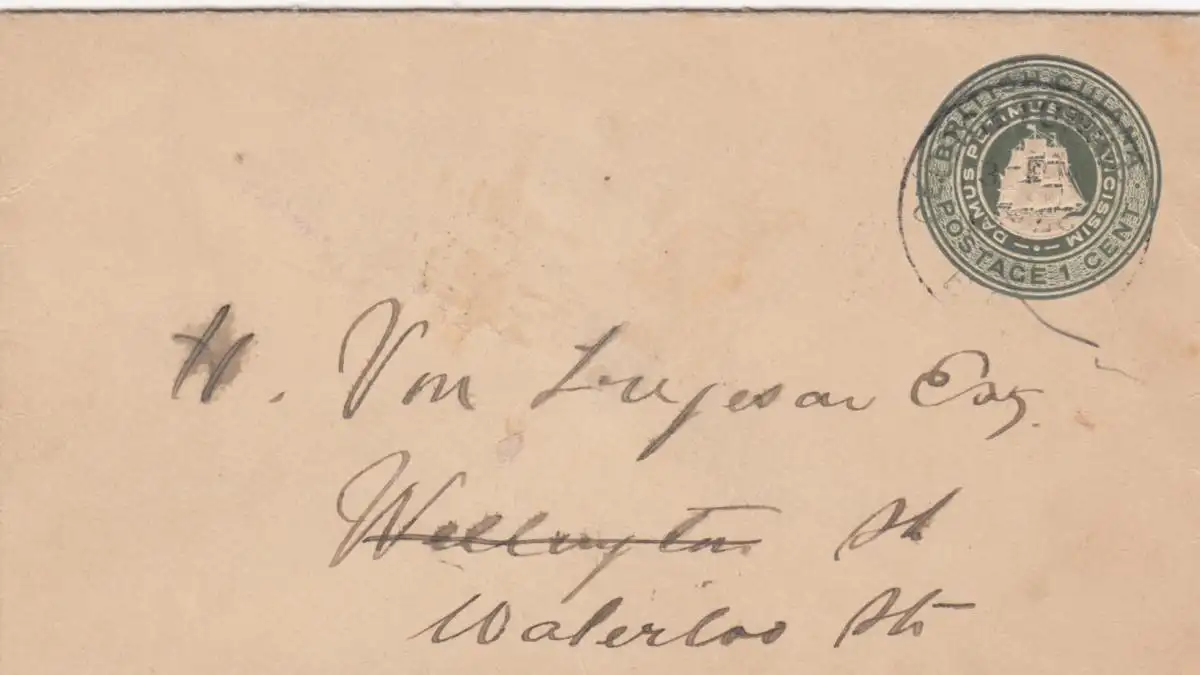 BRITISH GUIANA
DAMUS PETIMUS QUE VICISSIM
POSTAGE 1 CENT
Von Esq.
Wellington St
Waterloo St